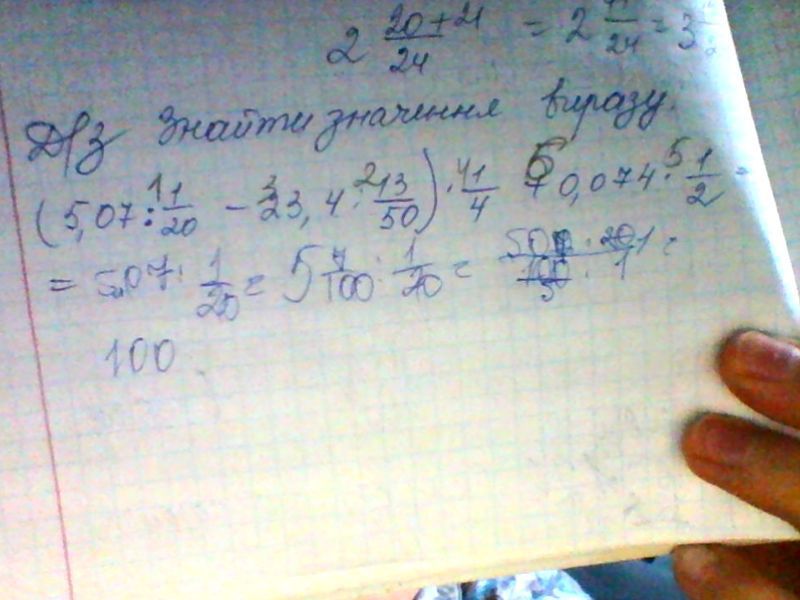 2 20+21/24 = 2 /24 = 3
Д/З Знайти значення виразу.
(5,07 : 1/20 - 23,4 · 13/50) · 1/4 + 0,074 : 1/2 =
= 5,07 : 1/20 = 5 7/100 : 1/20 = =
100